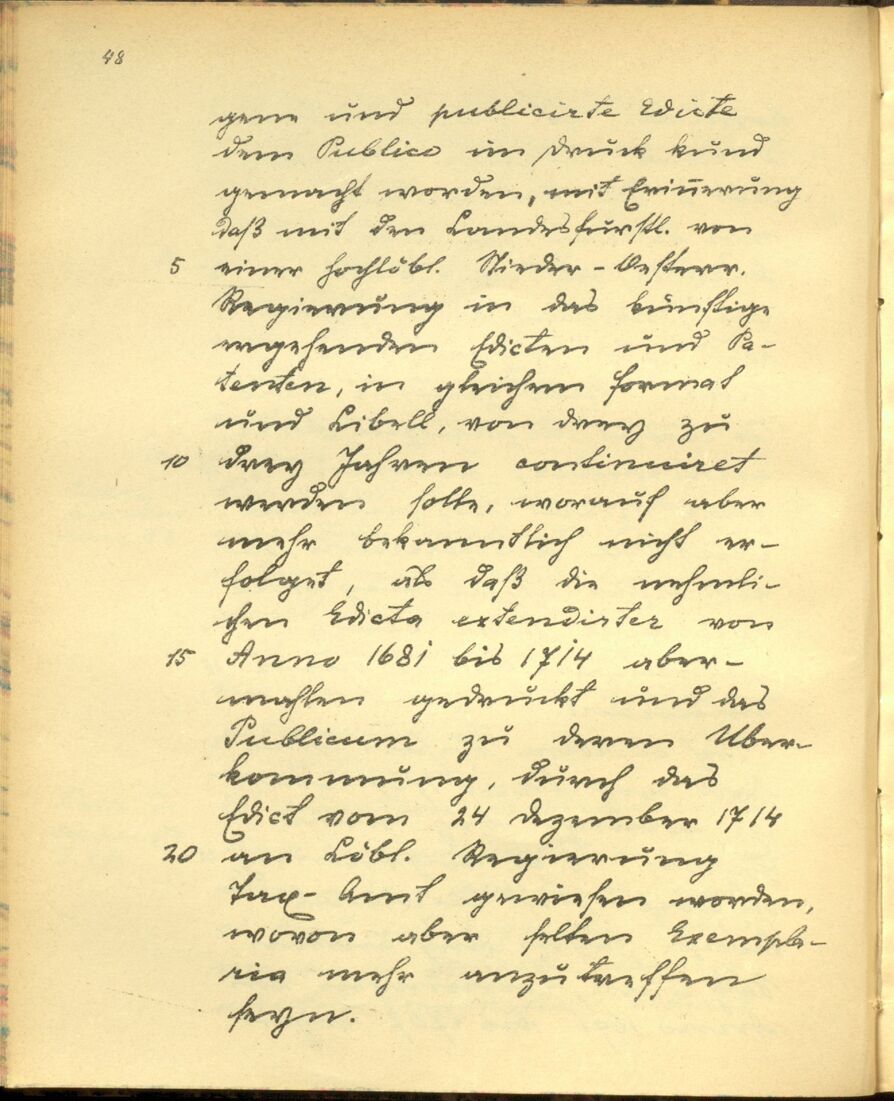 48
gene und publicirte Edicte
dem Publico im druck kund
gemacht worden, mit Erinnerung
daß mit den Landesfürstl. von
5 einer hochlöbl. Nieder-Oesterr.
Regierung in das künftige
ergehenden Edicten und Pa-
tenten, in gleichem format
und Libell, von drey zu
10 drey Jahren continuiret
werden solle, worauf aber
mehr bekanntlich nicht er-
folget, als daß die nehmli-
chen Edicta extendirter von
15 Anno 1681 bis 1714 aber-
mahlen gedruckt und das
Publicum zu deren Uber-
kommung, durch das
Edict vom 24 dezember 1714
20 an Löbl. Regierung
Tax-Amt gewiesen worden,
wovon aber selten Exempla-
ria mehr anzutreffen
seyn.